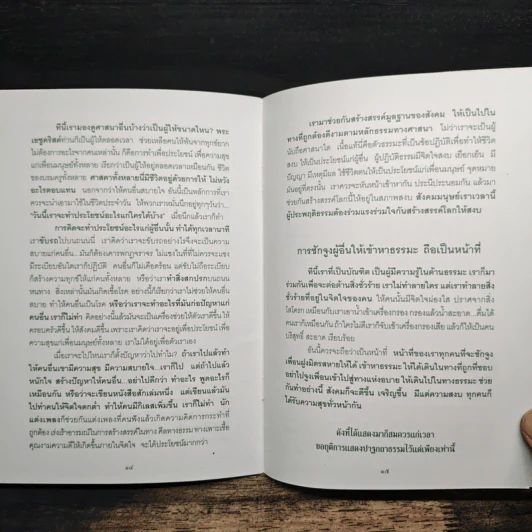 ทีนี้เรามองดูศาสนาอื่นบ้างว่าเป็นผู้ให้ขนาดไหน? พระ
เยซูคริสต์ท่านก็เป็นผู้ให้ตลอดเวลา ช่วยเหลือคนให้พ้นจากทุกข์ยาก
ไม่ต้องการอะไรจากคนเหล่านั้น ก็คือการทำเพื่อประโยชน์ เพื่อความสุข
แก่เพื่อนมนุษย์ทั้งหลาย เรียกว่าเป็นผู้ให้อยู่ตลอดเวลาเหมือนกัน ชีวิต
ของบรมครูทั้งหลาย ศาสดาทั้งหลายมีชีวิตอยู่ด้วยการให้ ไม่หวัง
อะไรตอบแทน นอกจากว่าให้คนอื่นสบายใจ อันนี้เป็นหลักการที่เรา
ควรจะนำเอามาใช้ในชีวิตประจำวัน ให้พวกเราหมั่นนึกอยู่ทุกๆ วันว่า...
'วันนี้เราจะทำประโยชน์อะไรแก่ใครได้บ้าง' เมื่อนึกแล้วเราก็ทำ
การคิดจะทำประโยชน์อะไรแก่ผู้อื่นนั้น ทำได้ทุกเวลานาที
เราขับรถไปบนถนนนี่ เราคิดว่าเราจะขับรถอย่างไรจึงจะเป็นความ
สบายแก่คนอื่น...มันก็ต้องเคารพกฎจราจร ไม่แซงในที่ที่ไม่ควรจะแซง
มีระเบียบอันใดเราก็ปฏิบัติ คนอื่นก็ไม่เดือดร้อน แต่ขับไม่ถือระเบียบ
ก็สร้างความทุกข์ให้แก่คนทั้งหลาย หรือว่าเราทำสิ่งสกปรกบนถนน
หนทาง สิ่งเหล่านั้นมันเกิดเชื้อโรค อย่างนี้ก็เรียกว่าเราไม่ช่วยให้คนอื่น
สบาย ทำให้คนอื่นเป็นโรค หรือว่าเราจะทำอะไรที่มันก่อปัญหาแก่
คนอื่น เราก็ไม่ทำ คิดอย่างนี้แล้วมันจะเป็นเครื่องช่วยให้ตัวเราดีขึ้น ให้
ครอบครัวดีขึ้น ให้สังคมดีขึ้น เพราะเราคิดว่าเราจะอยู่เพื่อประโยชน์ เพื่อ
ความสุขแก่เพื่อนมนุษย์ทั้งหลาย เราไม่ได้อยู่เพื่อตัวเราเอง
เมื่อเราจะไปไหนเราก็ตั้งปัญหาว่าไปทำไม? ถ้าเราไปแล้วทำ
ให้คนอื่นเขามีความสุข มีความสบายใจ...เราก็ไป แต่ถ้าไปแล้ว
หนักใจ สร้างปัญหาให้คนอื่น...อย่าไปดีกว่า ทำอะไร พูดอะไรก็
เหมือนกัน หรือว่าจะเขียนหนังสือสักเล่มหนึ่ง แต่เขียนแล้วมัน
ไปทำคนให้จิตใจตกต่ำ ทำให้คนมีกิเลสเพิ่มขึ้น เราก็ไม่ทำ นัก
แต่งเพลงก็ช่วยกันแต่งเพลงที่คนฟังแล้วเกิดความคิดการกระทำที่
ถูกต้อง เร่งเร้าอารมณ์ในการสร้างสรรค์ในทาง ศีลทางธรรม ทางเพาะเชื้อ
คุณงามความดีให้เกิดขึ้นภายในจิตใจ จะได้ประโยชน์มากกว่า
๑๘
เรามาช่วยกันสร้างสรรค์มูลฐานของสังคม ให้เป็นไปใน
ทางที่ถูกต้องดีงามตามหลักธรรมทางศาสนา ไม่ว่าเราจะเป็น
ผู้นับถือศาสนาใด เนื้อแท้นี้คือธรรมะที่เป็นข้อปฏิบัติเพื่อทำให้ชีวิต
สงบ ให้เป็นประโยชน์แก่ผู้อื่น ผู้ปฏิบัติธรรมมีจิตใจสงบ เยือกเย็น มี
ปัญญา มีเหตุผล ใช้ชีวิตตนให้เป็นประโยชน์แก่เพื่อนมนุษย์ จุดหมาย
มันอยู่ที่ตรงนั้น เราควรจะหันหน้าเข้าหากัน ประนีประนอมกัน แล้วมา
ช่วยกันสร้างสรรค์โลกนี้ให้อยู่ในสภาพสงบ สังคมมนุษย์เราเวลานี้
ผู้ประพฤติธรรมต้องร่วมแรงร่วมใจกันสร้างสรรค์โลกให้สงบ
การชักจูงผู้อื่นให้เข้าหาธรรมะ ถือเป็นหน้าที่
ทีนี้เราที่เป็นบัณฑิต เป็นผู้มีความรู้ในด้านธรรมะ เราก็มา
ร่วมกันเพื่อจะต่อต้านสิ่งชั่วร้าย เราไม่ทำลายใคร แต่เราทำลายสิ่ง
ชั่วร้ายที่อยู่ในจิตใจของคน ให้คนนั้นมีจิตใจผ่องใส ปราศจากสิ่ง
โสโครก เหมือนกับเราเอาน้ำเข้าเครื่องกรอง กรองแล้วน้ำสะอาด...ดื่มได้
คนเราก็เหมือนกัน ถ้าใครไม่ดีเราก็จับเข้าเครื่องกรองเสีย แล้วก็ให้เป็นคน
บริสุทธิ์ สะอาด เรียบร้อย
อันนี้ควรจะถือว่าเป็นหน้าที่ หน้าที่ของเราทุกคนที่จะชักจูง
เพื่อนฝูงมิตรสหายให้ได้ เข้าหาธรรมะ ให้ได้เดินไปในทางที่ถูกที่ชอบ
อย่าไปจูงเพื่อนเข้าไปสู่ทางแห่งอบาย ให้เดินไปในทางธรรมะ ช่วย
กันทำอย่างนี้ สังคมก็จะดีขึ้น เจริญขึ้น มีแต่ความสงบ ทุกคนก็
ได้รับความสุขทั่วหน้ากัน
ดังที่ได้แสดงมาก็สมควรแก่เวลา
ขอยุติการแสดงปาฐกถาธรรมไว้แต่เพียงเท่านี้
๑๙